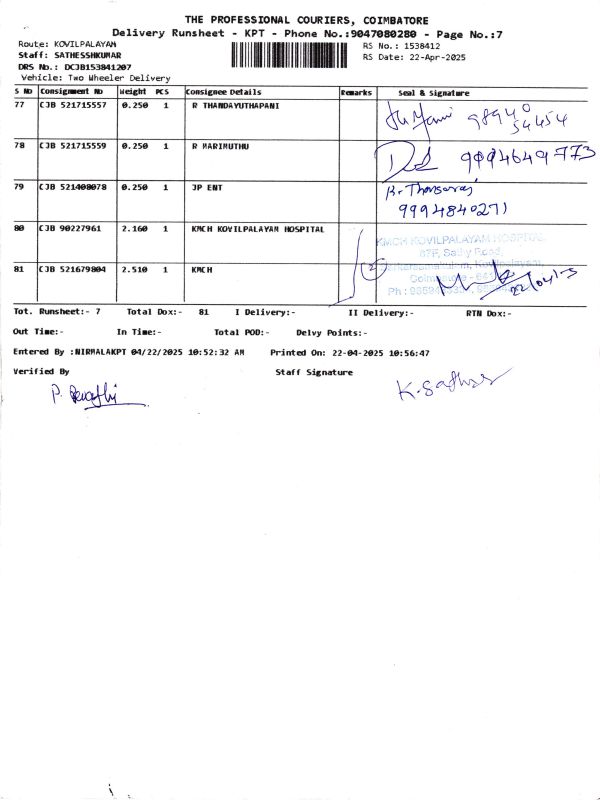 THE PROFESSIONAL COURIERS, COIMBATORE
Delivery Runsheet - KPT - Phone No.:9047080280 - Page No.:7
Route: KOVILPALAYAM RS No.: 1538412
Staff: SATHESSHKUMAR RS Date: 22-Apr-2025
DRS No.: DCJB153841207
Vehicle: Two Wheeler Delivery
S NO Consignment No Weight PCS Consignee Details Remarks Seal & Signature
77 CJB 521715557 0.250 1 R THANDAYUTHAPANI 98940
54454
78 CJB 521715559 0.250 1 R MARIMUTHU 9994649773
79 CJB 521408078 0.250 1 JP ENT
9994840271
80 CJB 90227961 2.160 1 KMCH KOVILPALAYAM HOSPITAL
KMCH KOVILPALAYAM HOSPITAL
Coimbatore
81 CJB 521679804 2.510 1 KMCH 2 22/04/25
Tot. Runsheet:- 7 Total Dox:- 81 I Delivery:- II Delivery:- RTN Dox:-
Out Time:- In Time:- Total POD:- Delvy Points:-
Entered By :NIRMALAKPT 04/22/2025 10:52:32 AM Printed On: 22-04-2025 10:56:47
Verified By Staff Signature